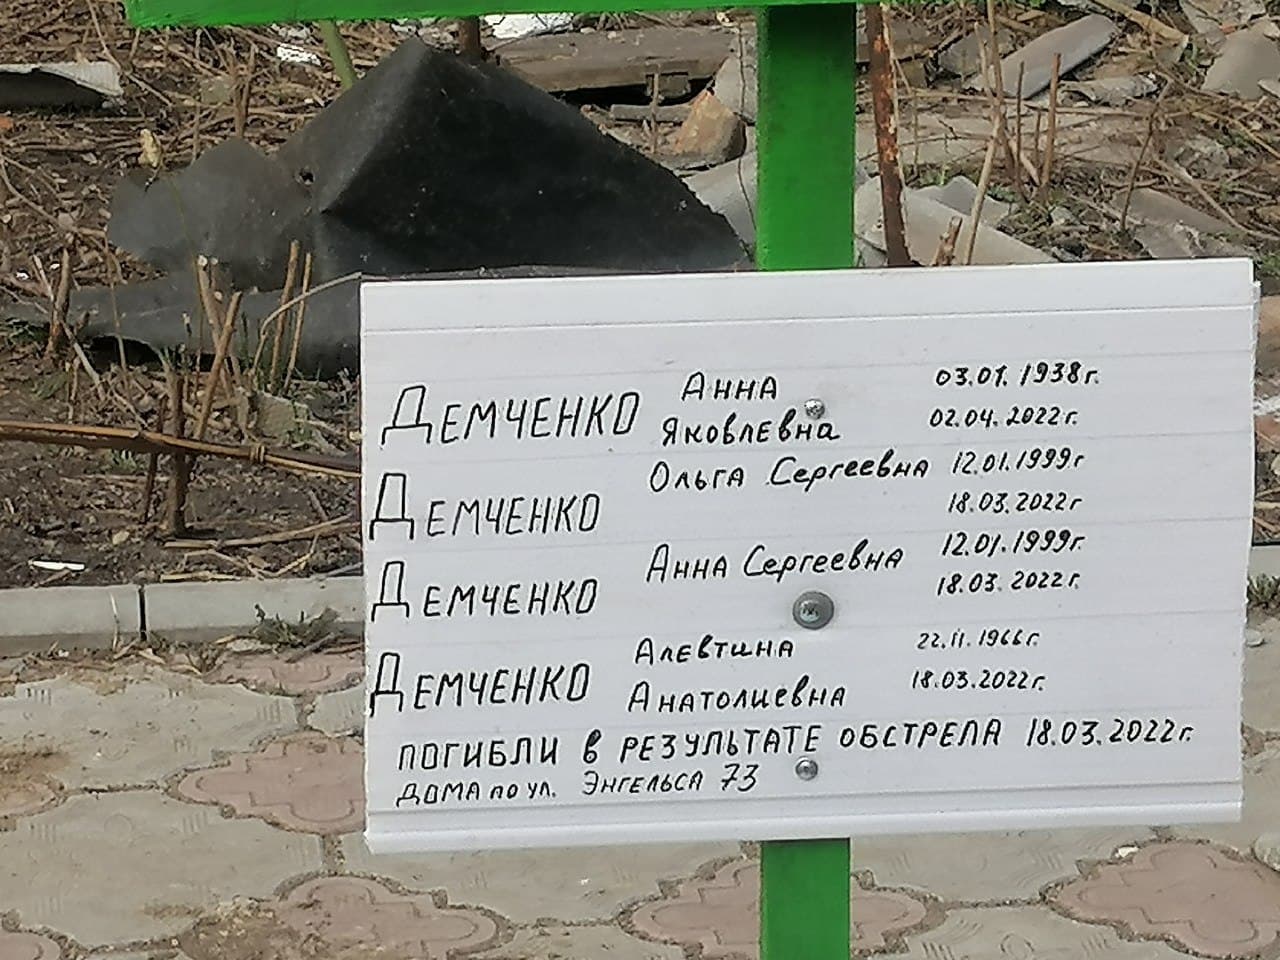 ДЕМЧЕНКО АННА 03.01.1938г.
ЯКОВЛЕВНА 02.04.2022г.
ДЕМЧЕНКО ОЛЬГА СЕРГЕЕВНА 12.01.1999г
18.03.2022г
ДЕМЧЕНКО АННА СЕРГЕЕВНА 12.01.1999г.
18.03.2022г.
ДЕМЧЕНКО АЛЕВТИНА 22.11.1966г.
АНАТОЛИЕВНА 18.03.2022г.
ПОГИБЛИ В РЕЗУЛЬТАТЕ ОБСТРЕЛА 18.03.2022г.
ДОМА ПО УЛ. ЭНГЕЛЬСА 73